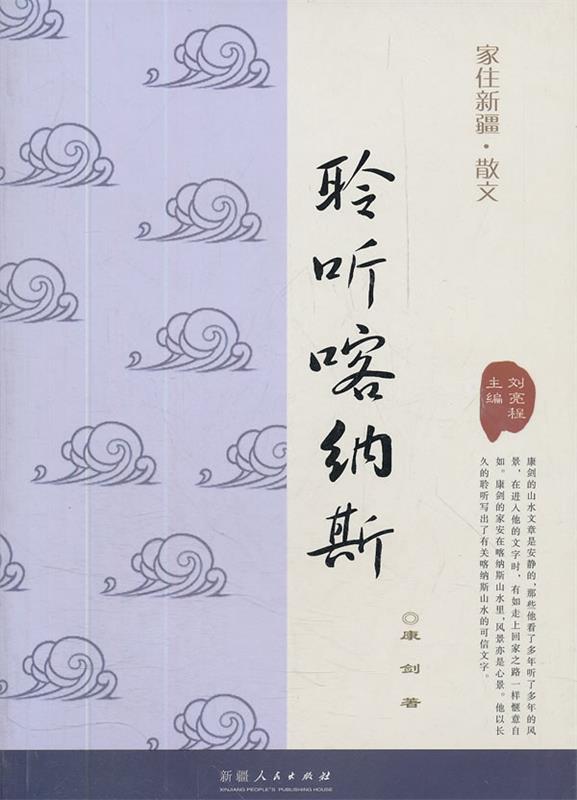 家住新疆·散文
聆听喀纳斯
刘亮程
主编
康剑的山水文章是安静的，那些他看了多年听了多年的风
景，在进入他的文字时，有如走上回家之路一样惬意自
如。康剑的家安在喀纳斯山水里，风景亦是心景。他以长
久的聆听写出了有关喀纳斯山水的可信文字。
◎康剑著
新疆人民出版社
XINJIANG PEOPLE'S PUBLISHING HOUSE